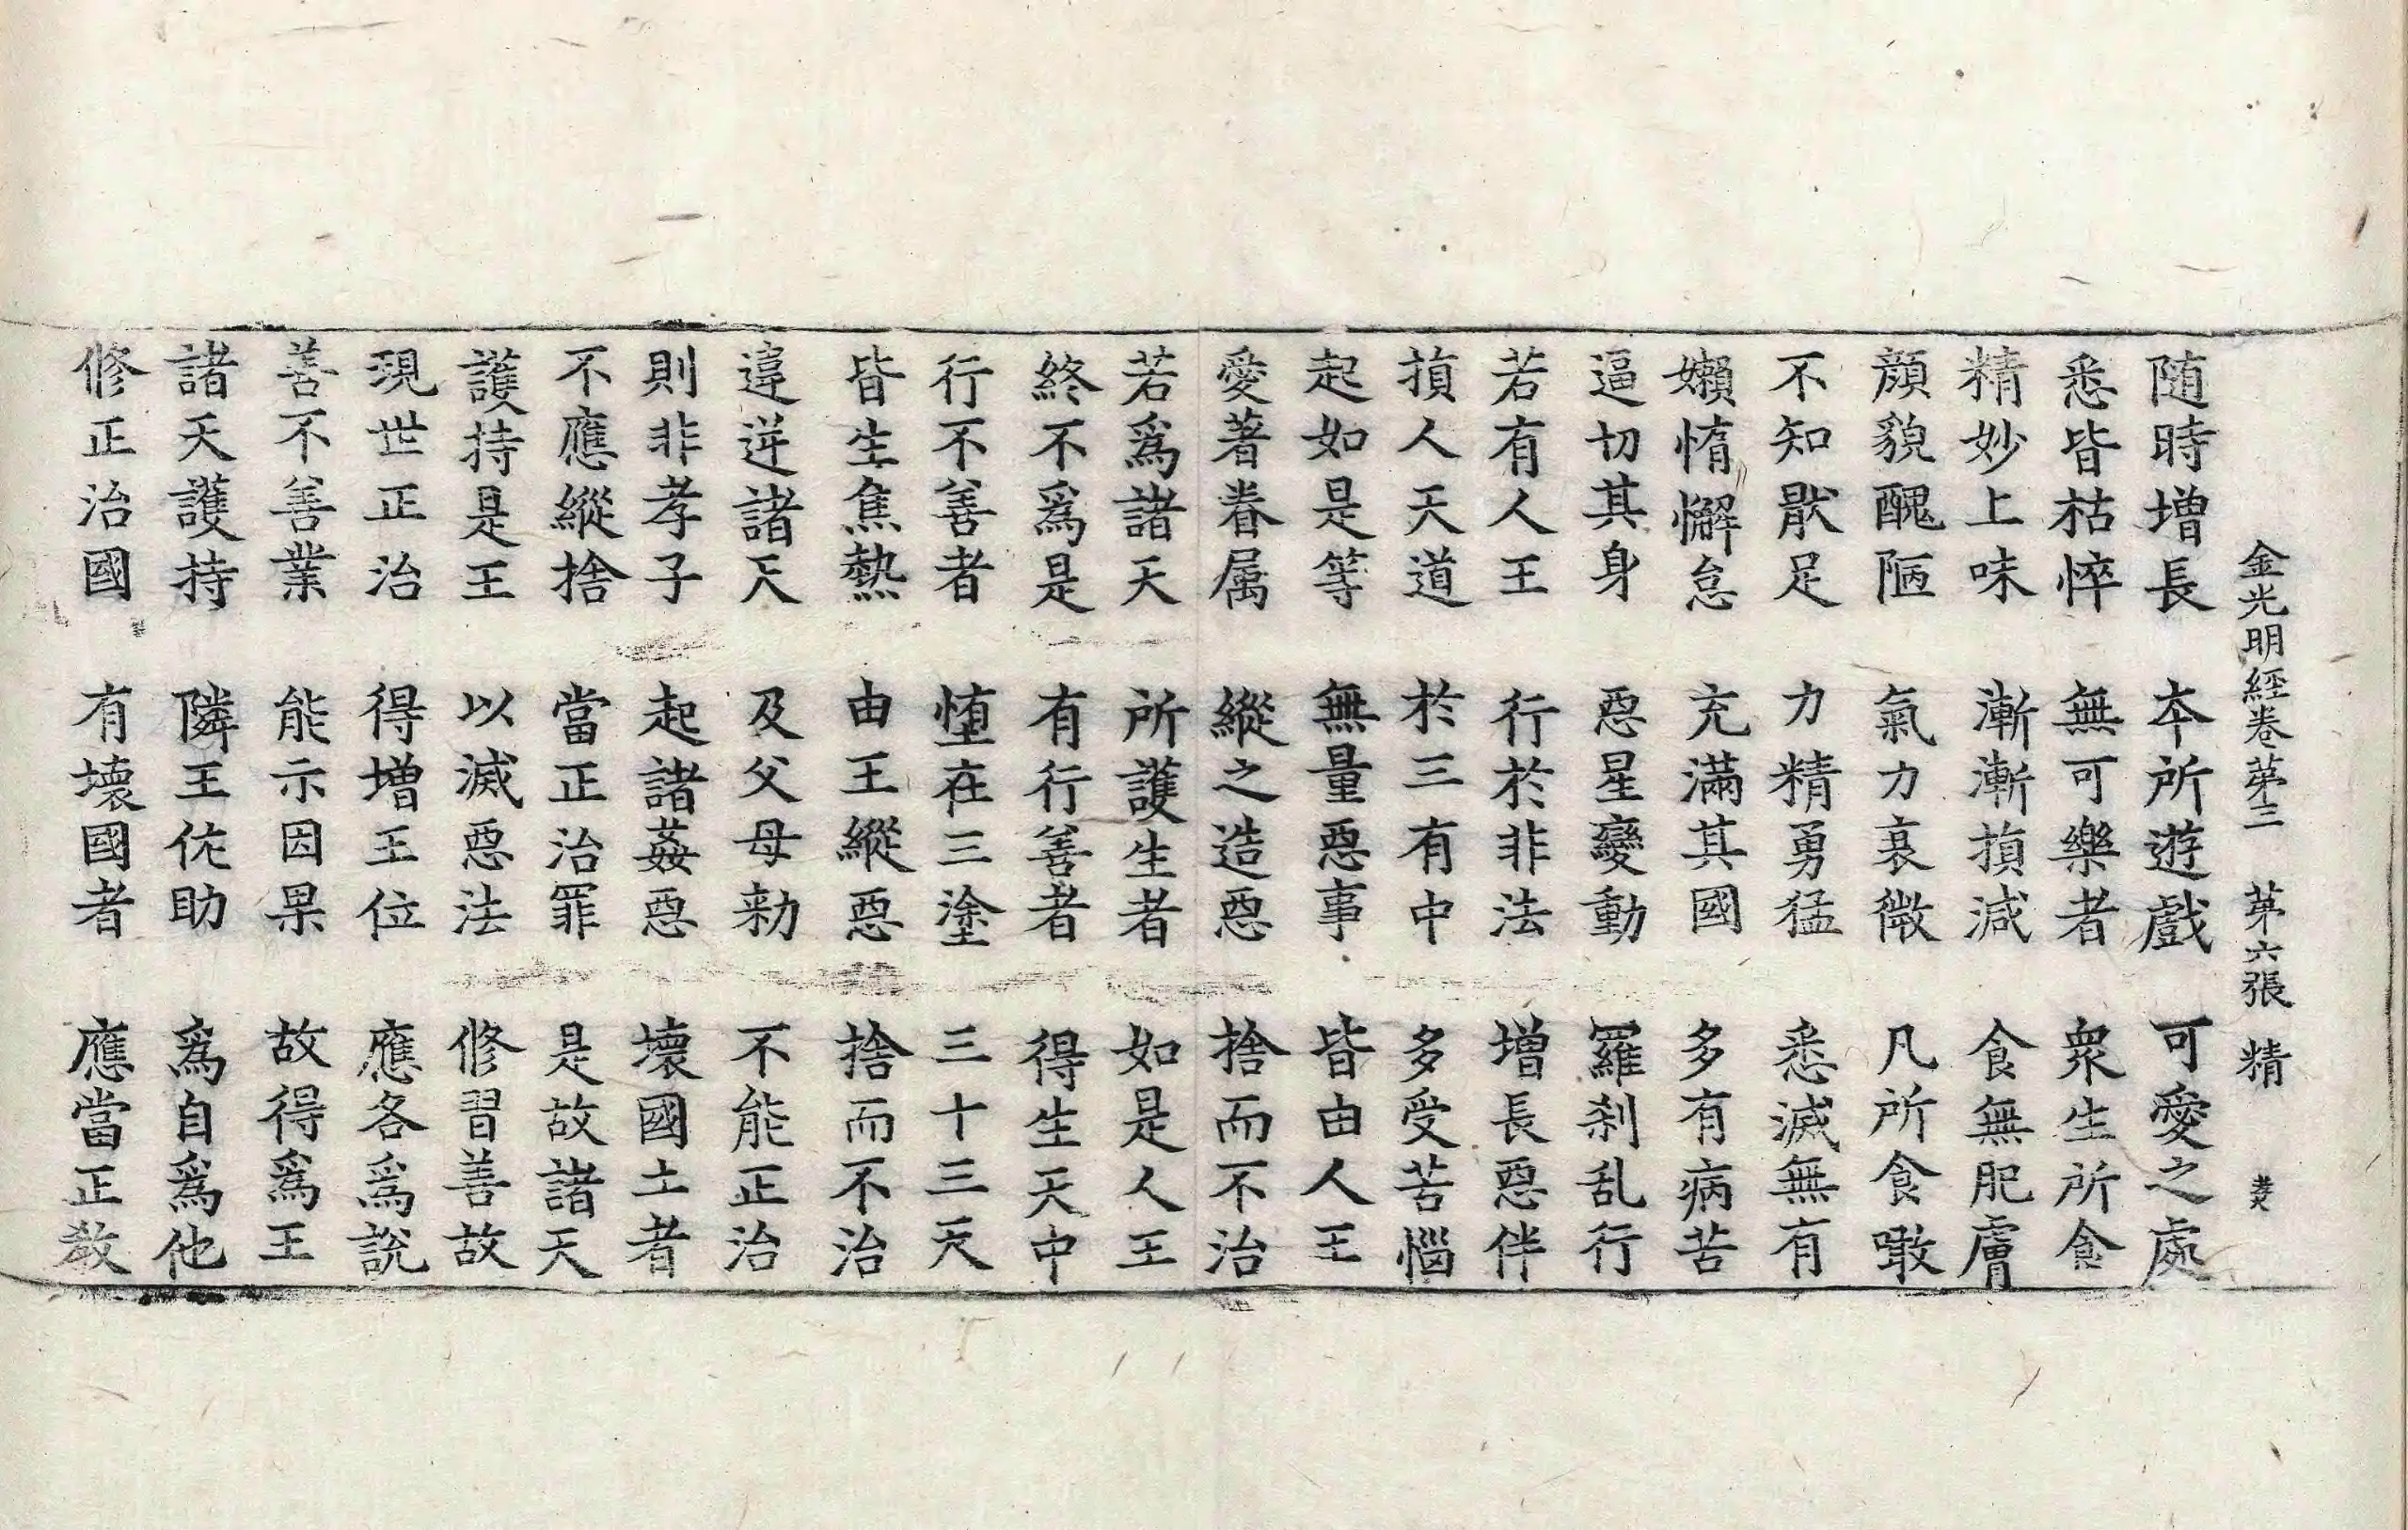 金光明經卷苐三 苐六張 精
随時增長 夲所遊戲 可愛之處
悉皆枯悴 無可樂者 衆生所食
精妙上味 漸漸損減 食無肥膚
顏貌醜陋 氣力衰微 凡所食噉
不知猒足 力精勇猛 悉滅無有
嬾惰懈怠 充滿其國 多有病苦
逼切其身 惡星變動 羅刹乱行
若有人王 行於非法 增長惡伴
損人天道 於三有中 多受苦惱
起如是等 無量惡事 皆由人王
愛著眷属 縱之造惡 捨而不治
若爲諸天 所護生者 如是人王
終不爲是 有行善者 得生天中
行不善者 墮在三塗 三十三天
皆生焦熱 由王縱惡 捨而不治
違逆諸天 及父母勑 不能正治
則非孝子 起諸姦惡 壞國土者
不應縱捨 當正治罪 是故諸天
護持是王 以滅惡法 修習善故
現世正治 得增王位 應各爲說
善不善業 能示因果 故得爲王
諸天護持 隣王佐助 爲自爲他
修正治國 有壞國者 應當正教